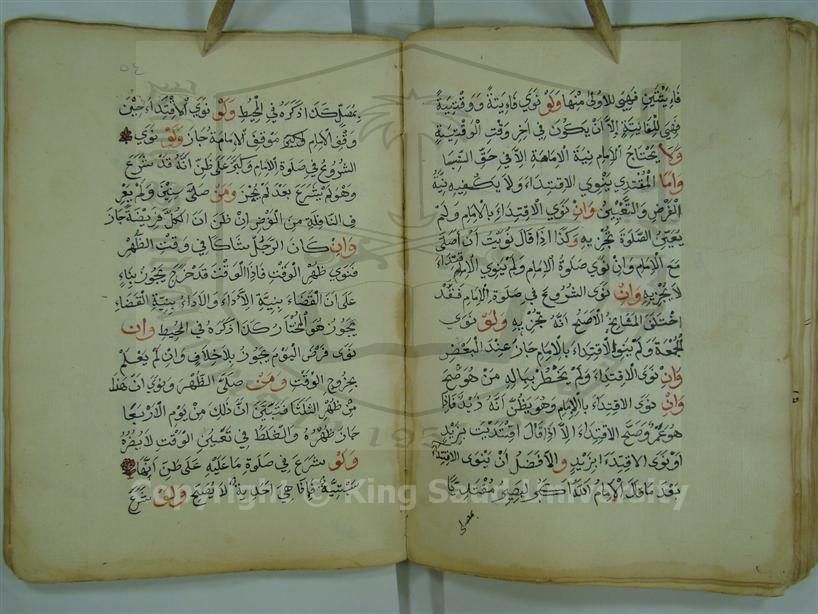 فايتتين فهي للاولى منهما ولو نوى فايتة ووقتية
فهي للفايتة الا ان يكون في اخر وقت الوقتية
ولا يحتاج الامام نية الامامة الا في حق النسا
واما المقتدي ينوي الاقتداء ولا يكفيه نية
الفرض والتعيين وان نوى الاقتداء بالامام ولم
يعين الصلوة تجزيه وكذا اذا قال نويت ان اصلي
مع الامام وان نوى صلوة الامام ولم ينوي الاقتداء
لا تجزيه وان نوى الشروع في صلوة الامام فقد
اختلف المشايخ الاصح انه تجزيه ولو نوى
الجمعة ولم ينو الاقتداء بالامام جاز عند البعض
وان نوى الاقتداء ولم يخطر بباله من هو صح
وان نوى الاقتداء بالامام وهو يظن انه زيد فاذا
هو عمرو صح الاقتداء الا اذا قال اقتديت بزيد
او نوى الاقتداء بزيد والافضل ان ينوى الاقتداء
بعد ما قال الامام الله اكبر ليصير مقتديا
بمصل
٥٤
بمصل كذا ذكره في المحيط ولو نوى الاقتداء حين
وقف الامام موقف الامامة جاز ولو نوى
الشروع في صلوة الامام وكبر على ظن انه قد شرع
وهو لم يشرع بعد لم يجز ومن صلى سنين ولم يعرف
النافلة من الفرض ان ظن ان الكل فريضة جاز
وان كان الرجل شاكا في وقت الظهر
فنوى ظهر الوقت فاذا الوقت قد خرج يجوز بناء
على ان القضاء بنية الاداء والاداء بنية القضاء
يجوز هو المختار كذا ذكره في المحيط وان
نوى فرض اليوم يجوز بلا خلاف وان لم يعلم
بخروج الوقت ومن صلى الظهر ونوى ان هذا
من ظهر الثلثا فتبين ان ذلك من يوم الاربعا
جاز ظهره والغلط في تعيين الوقت لا يضره
ولو شرع في صلوة ما عليه على ظن انها
سبتية فاذا هي احدية لا يصح ولو شرع
Copyright © King Saud University
195